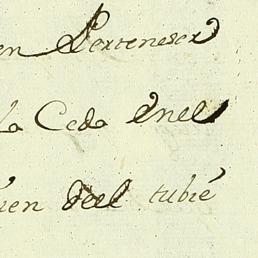 en Perteneser
la Ceda enel
ien del tubie